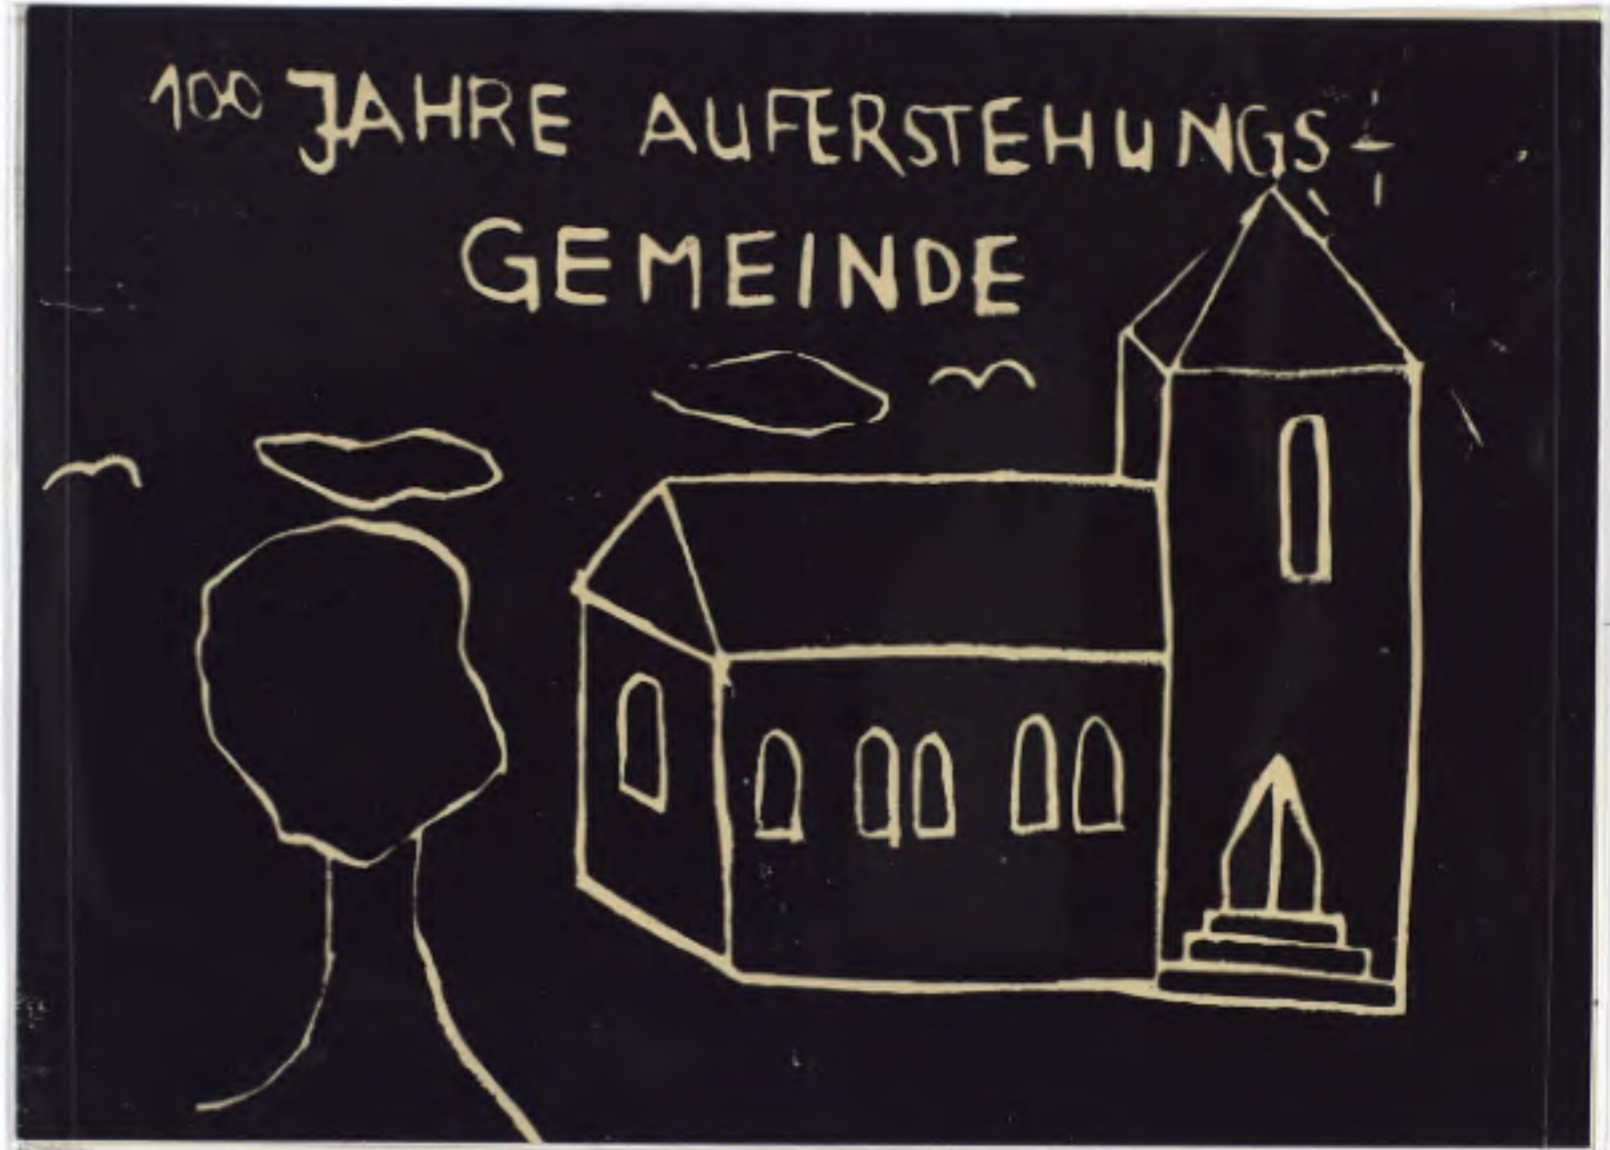 100 JAHRE AUFERSTEHUNGS-
GEMEINDE